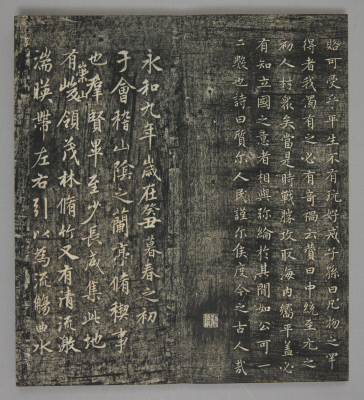 貽可受許平生不有玩好戒子孫曰凡物之罕
得者我獨有之必有奇禍云贊曰中統至元之
初人材衆矣當是時戰勝攻取海内獨平蓋必
有知立國之意者相與弥綸於其間如公可一
二數也詩曰質尔人民謹尔侯度今之古人哉
永和九年歲在癸丑暮春之初
于會稽山陰之蘭亭脩稧事
也羣賢畢至少長咸集此地
有崇山峻領茂林脩竹又有清流激
湍暎帶左右引以為流觴曲水